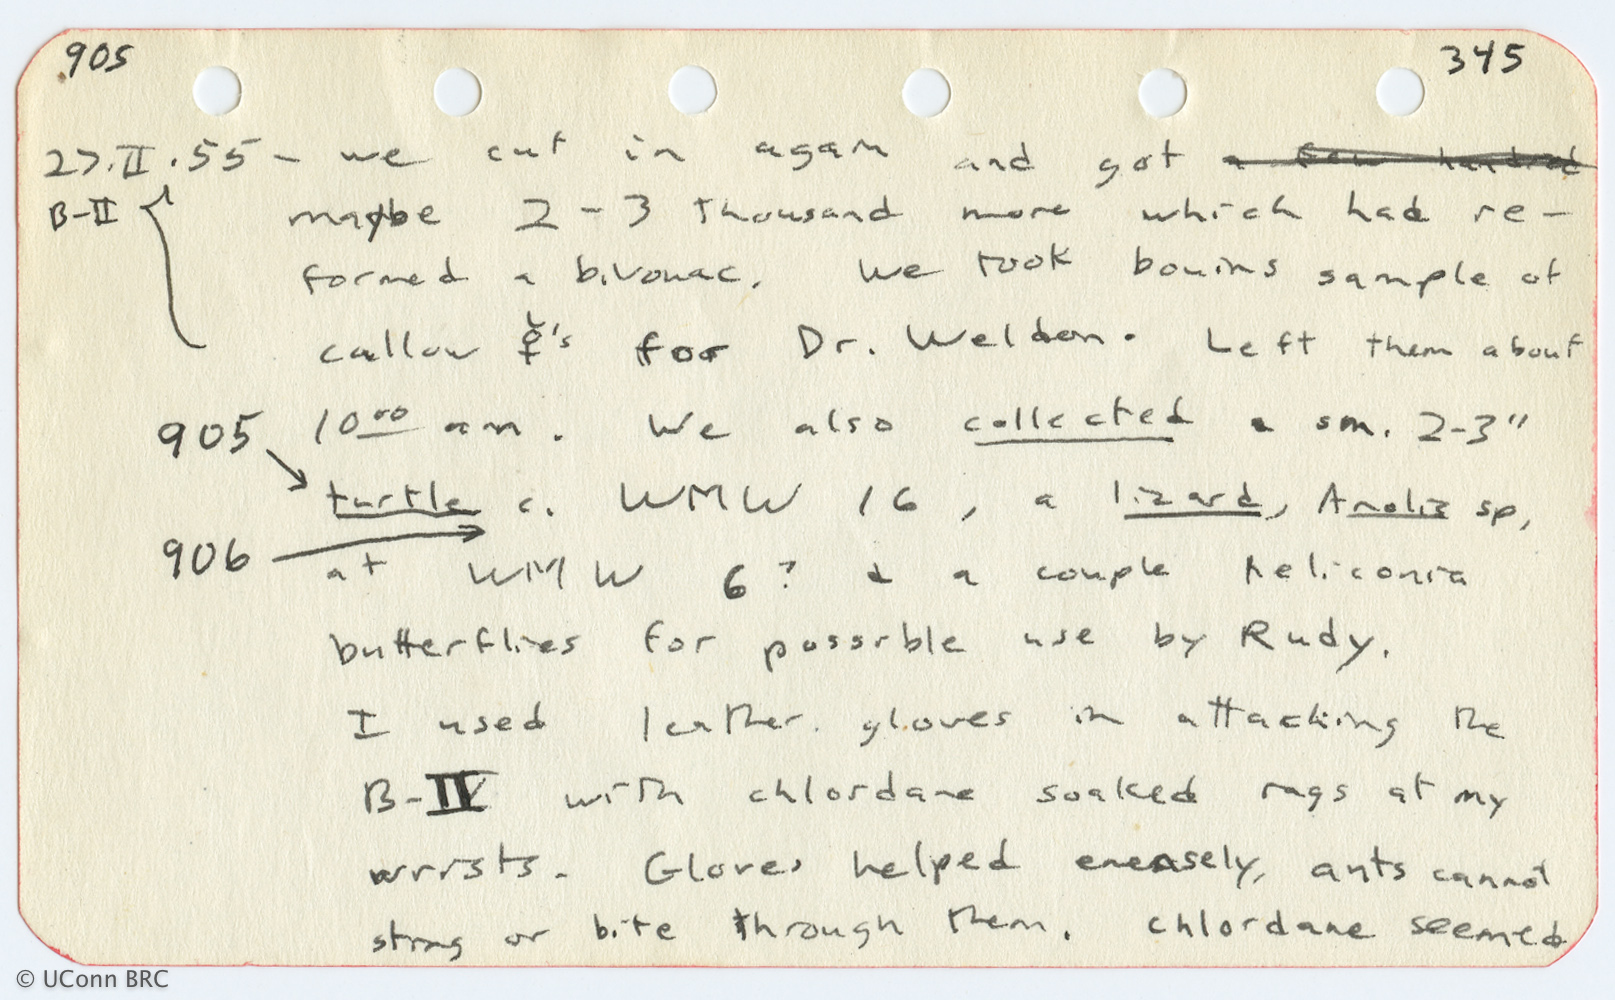 905 345
27.II.55 - we cut in again and got a few hundred
B-II maybe 2-3 thousand more which had re-
formed a bivouac. We took bouins sample of
callow ☿'s for Dr. Weldon. Left them about
905 10⁰⁰ am. We also collected a sm. 2-3"
turtle c. WMW 16, a lizard, Anolis sp,
906 at WMW 6? & a couple heliconia
butterflies for possible use by Rudy.
I used leather gloves in attacking the
B-IV with chlordane soaked rags at my
wrists. Gloves helped emensely, ants cannot
sting or bite through them. Chlordane seemed
© UConn BRC